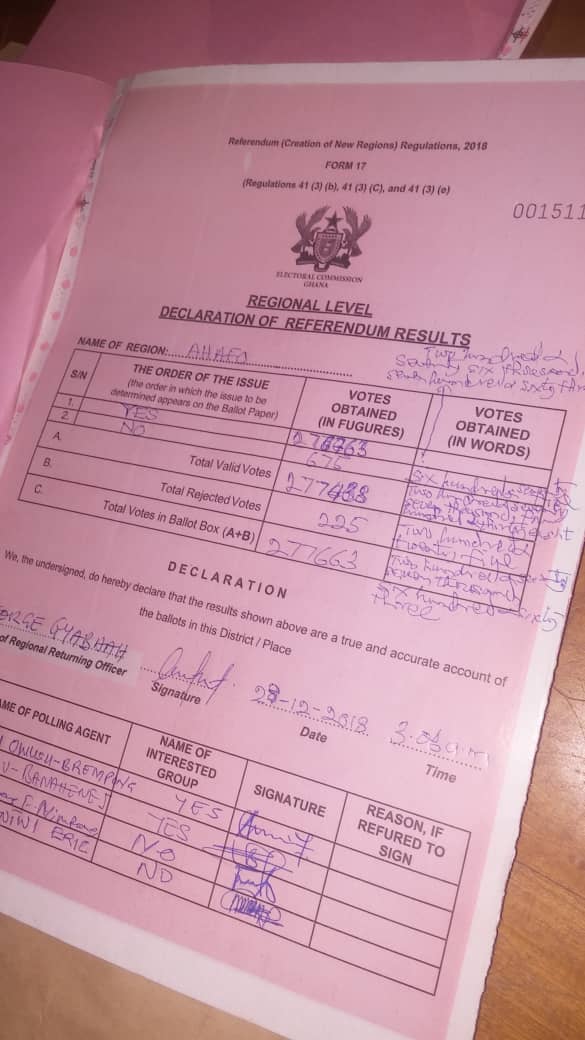 Referendum (Creation of New Regions) Regulations, 2018
FORM 17
(Regulations 41 (3) (b), 41 (3) (C), and 41 (3) (e)
001511
ELECTORAL COMMISSION
GHANA
REGIONAL LEVEL
DECLARATION OF REFERENDUM RESULTS
NAME OF REGION: AHAFO
Two hundred &
seventy six thousand,
seven hundred & sixty three
S/N
THE ORDER OF THE ISSUE
(the order in which the issue to be
determined appears on the Ballot Paper)
VOTES
OBTAINED
(IN FUGURES)
VOTES
OBTAINED
(IN WORDS)
1. YES 276763
2. NO 675
six hundred & seventy
A. Total Valid Votes 277438
Two hundred & seventy
seven thousand, four
hundred & thirty eight
B. Total Rejected Votes 225
Two hundred &
twenty five
C. Total Votes in Ballot Box (A+B) 277663
Two hundred & seventy
seven thousand
six hundred & sixty
three
DECLARATION
We, the undersigned, do hereby declare that the results shown above are a true and accurate account of
the ballots in this District / Place
ORGE GYABAAH
of Regional Returning Officer
Signature
28-12-2018
Date
3:08am
Time
AME OF POLLING AGENT
NAME OF
INTERESTED
GROUP
SIGNATURE
REASON, IF
REFURED TO
SIGN
OWUSU-BREMPONG YES
BANAHENE YES
NO
ERIC NO